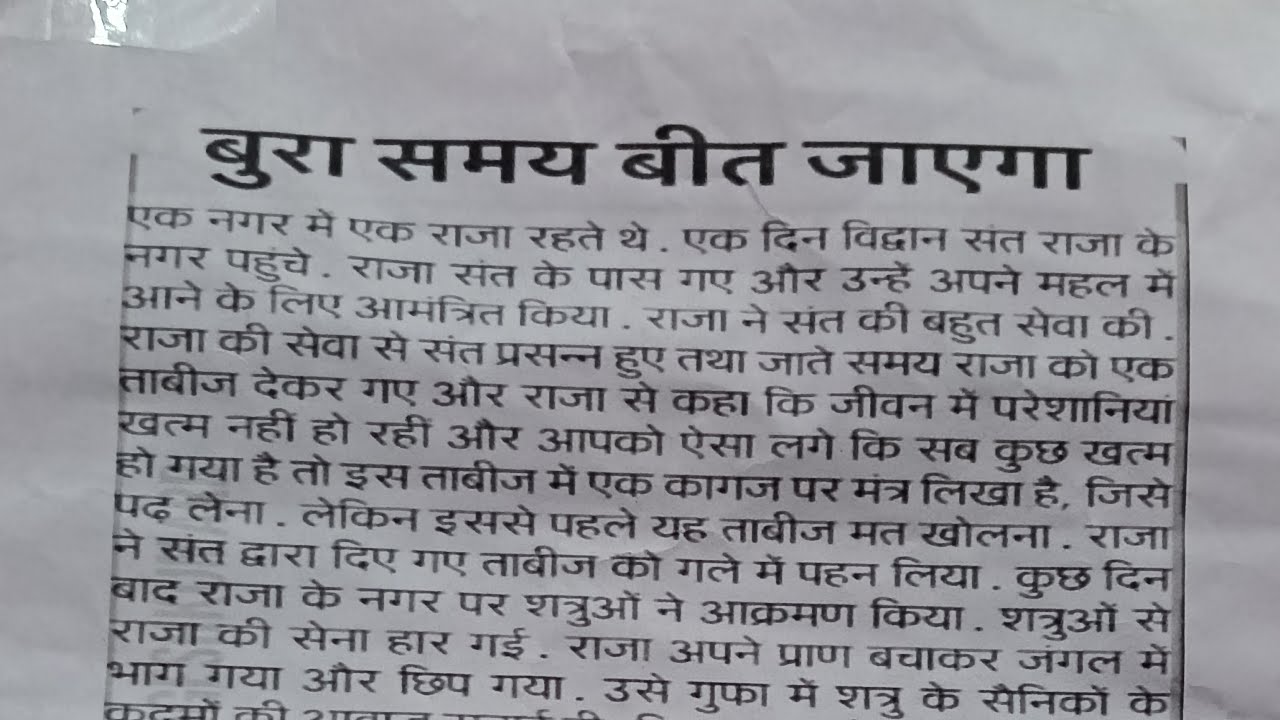 बुरा समय बीत जाएगा
एक नगर में एक राजा रहते थे . एक दिन विद्वान संत राजा के
नगर पहुंचे . राजा संत के पास गए और उन्हें अपने महल में
आने के लिए आमंत्रित किया . राजा ने संत की बहुत सेवा की .
राजा की सेवा से संत प्रसन्न हुए तथा जाते समय राजा को एक
ताबीज देकर गए और राजा से कहा कि जीवन में परेशानियां
खत्म नहीं हो रहीं और आपको ऐसा लगे कि सब कुछ खत्म
हो गया है तो इस ताबीज में एक कागज पर मंत्र लिखा है, जिसे
पढ़ लेना . लेकिन इससे पहले यह ताबीज मत खोलना . राजा
ने संत द्वारा दिए गए ताबीज को गले में पहन लिया . कुछ दिन
बाद राजा के नगर पर शत्रुओं ने आक्रमण किया . शत्रुओं से
राजा की सेना हार गई . राजा अपने प्राण बचाकर जंगल में
भाग गया और छिप गया . उसे गुफा में शत्रु के सैनिकों के
कदमों की